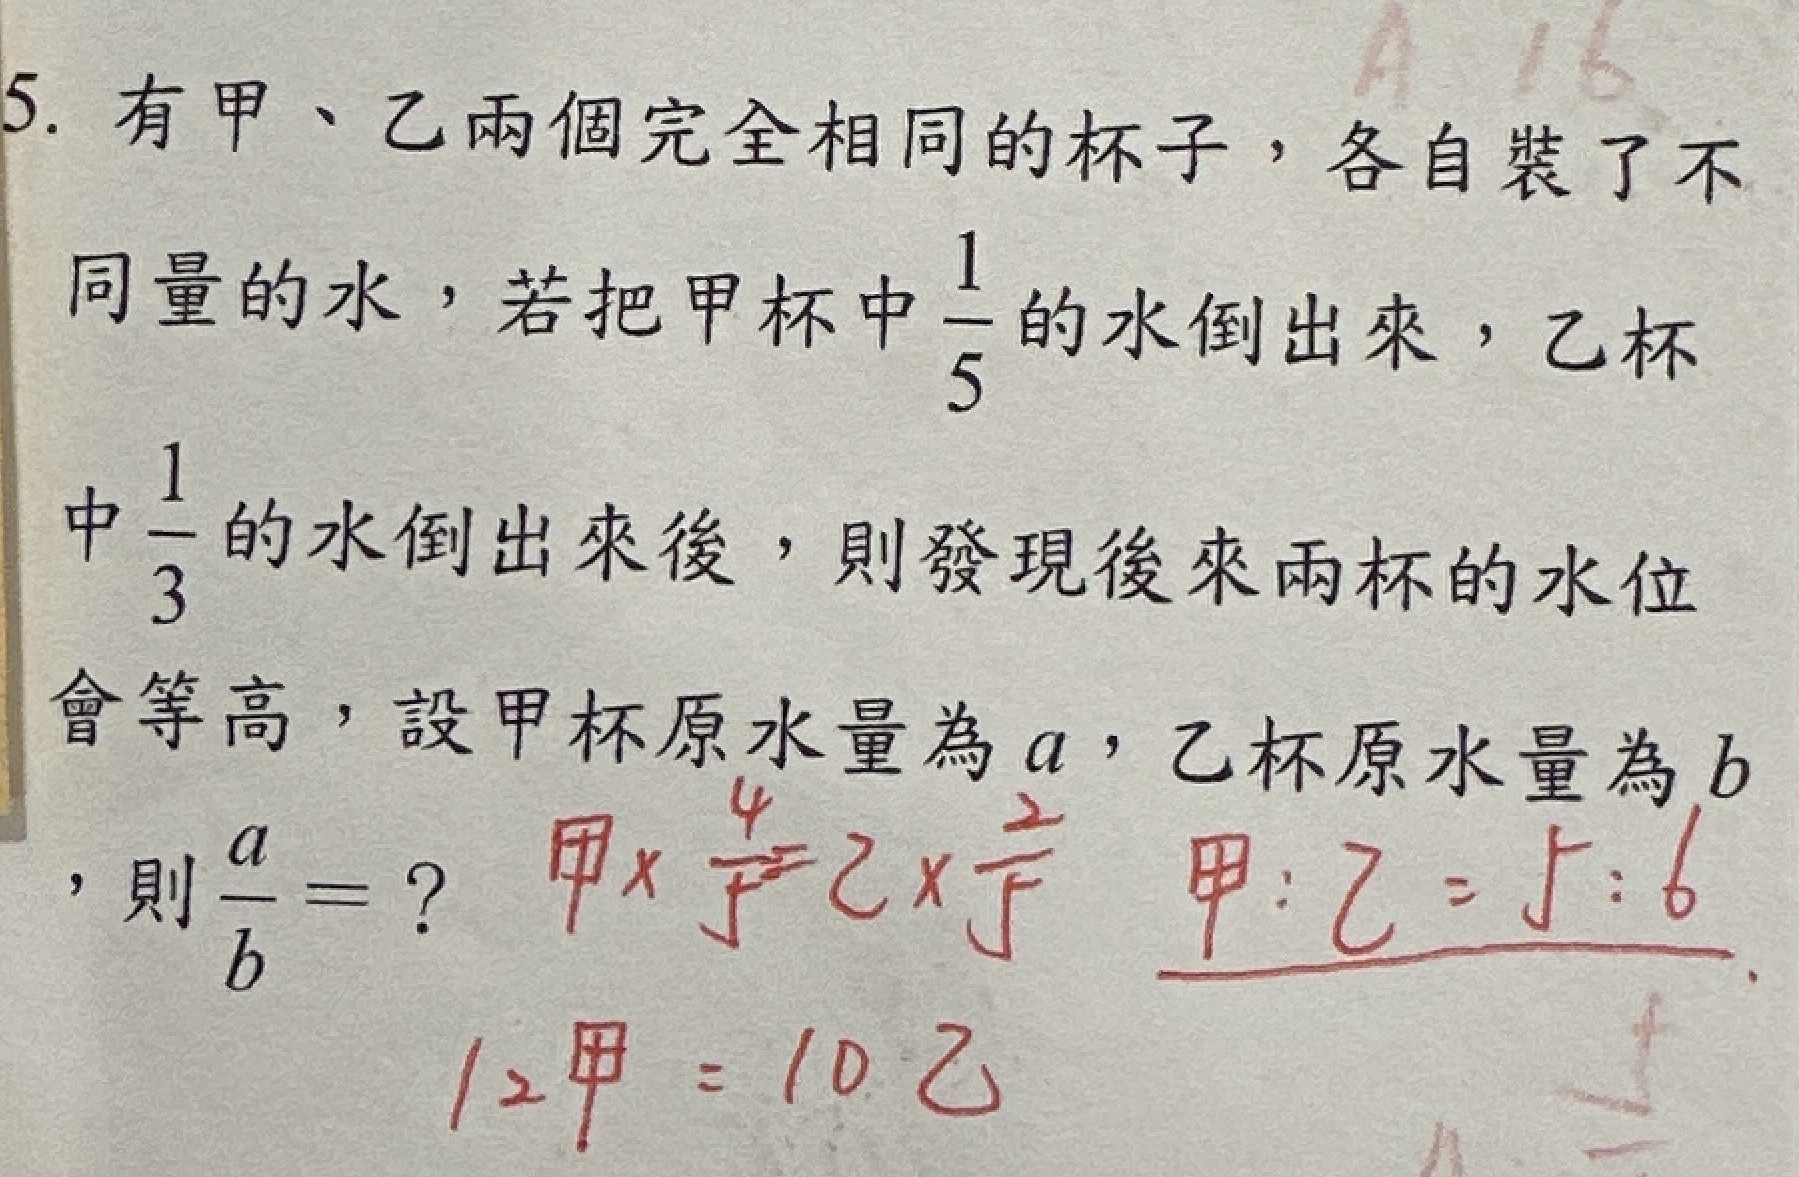 A 16
5. 有甲、乙兩個完全相同的杯子，各自裝了不
同量的水，若把甲杯中 1/5 的水倒出來，乙杯
中 1/3 的水倒出來後，則發現後來兩杯的水位
會等高，設甲杯原水量為 a，乙杯原水量為 b
，則 a/b = ？ 甲 × 4/5 = 乙 × 2/5 甲 : 乙 = 5 : 6
12甲 = 10乙